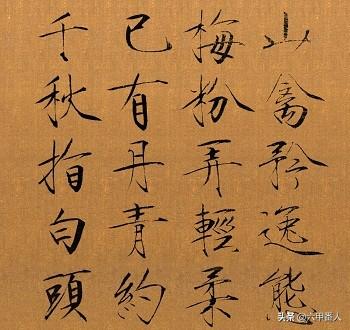 山禽矜逸態
梅粉弄輕柔
已有丹青約
千秋指白頭
头条@六甲番人